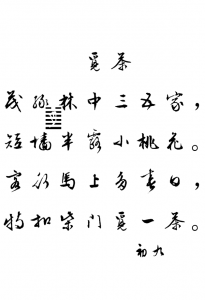 觅茶
茂林中三五家，
短墙半露小桃花。
客行马上多春日，
特扣柴门觅一茶。
初九